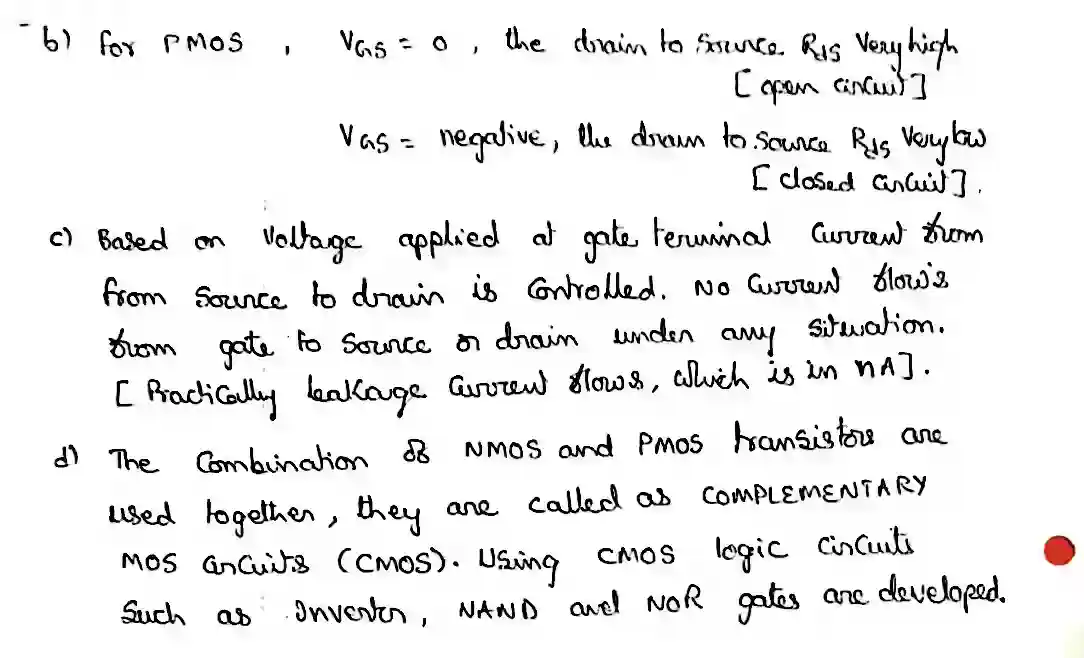 b) for PMOS , VGS = 0 , the drain to source Rds Very high
[ open circuit ]
VGS = negative, the drain to source Rds Very low
[ closed circuit ].
c) Based on Voltage applied at gate terminal Current from
from source to drain is Controlled. No Current flow's
from gate to source or drain under any situation.
[ Practically leakage Current flows, which is in nA ].
d) The Combination of NMOS and PMOS transistors are
used together, they are called as COMPLEMENTARY
MOS circuits (CMOS). Using CMOS logic circuits
Such as Inverter, NAND and NOR gates are developed.